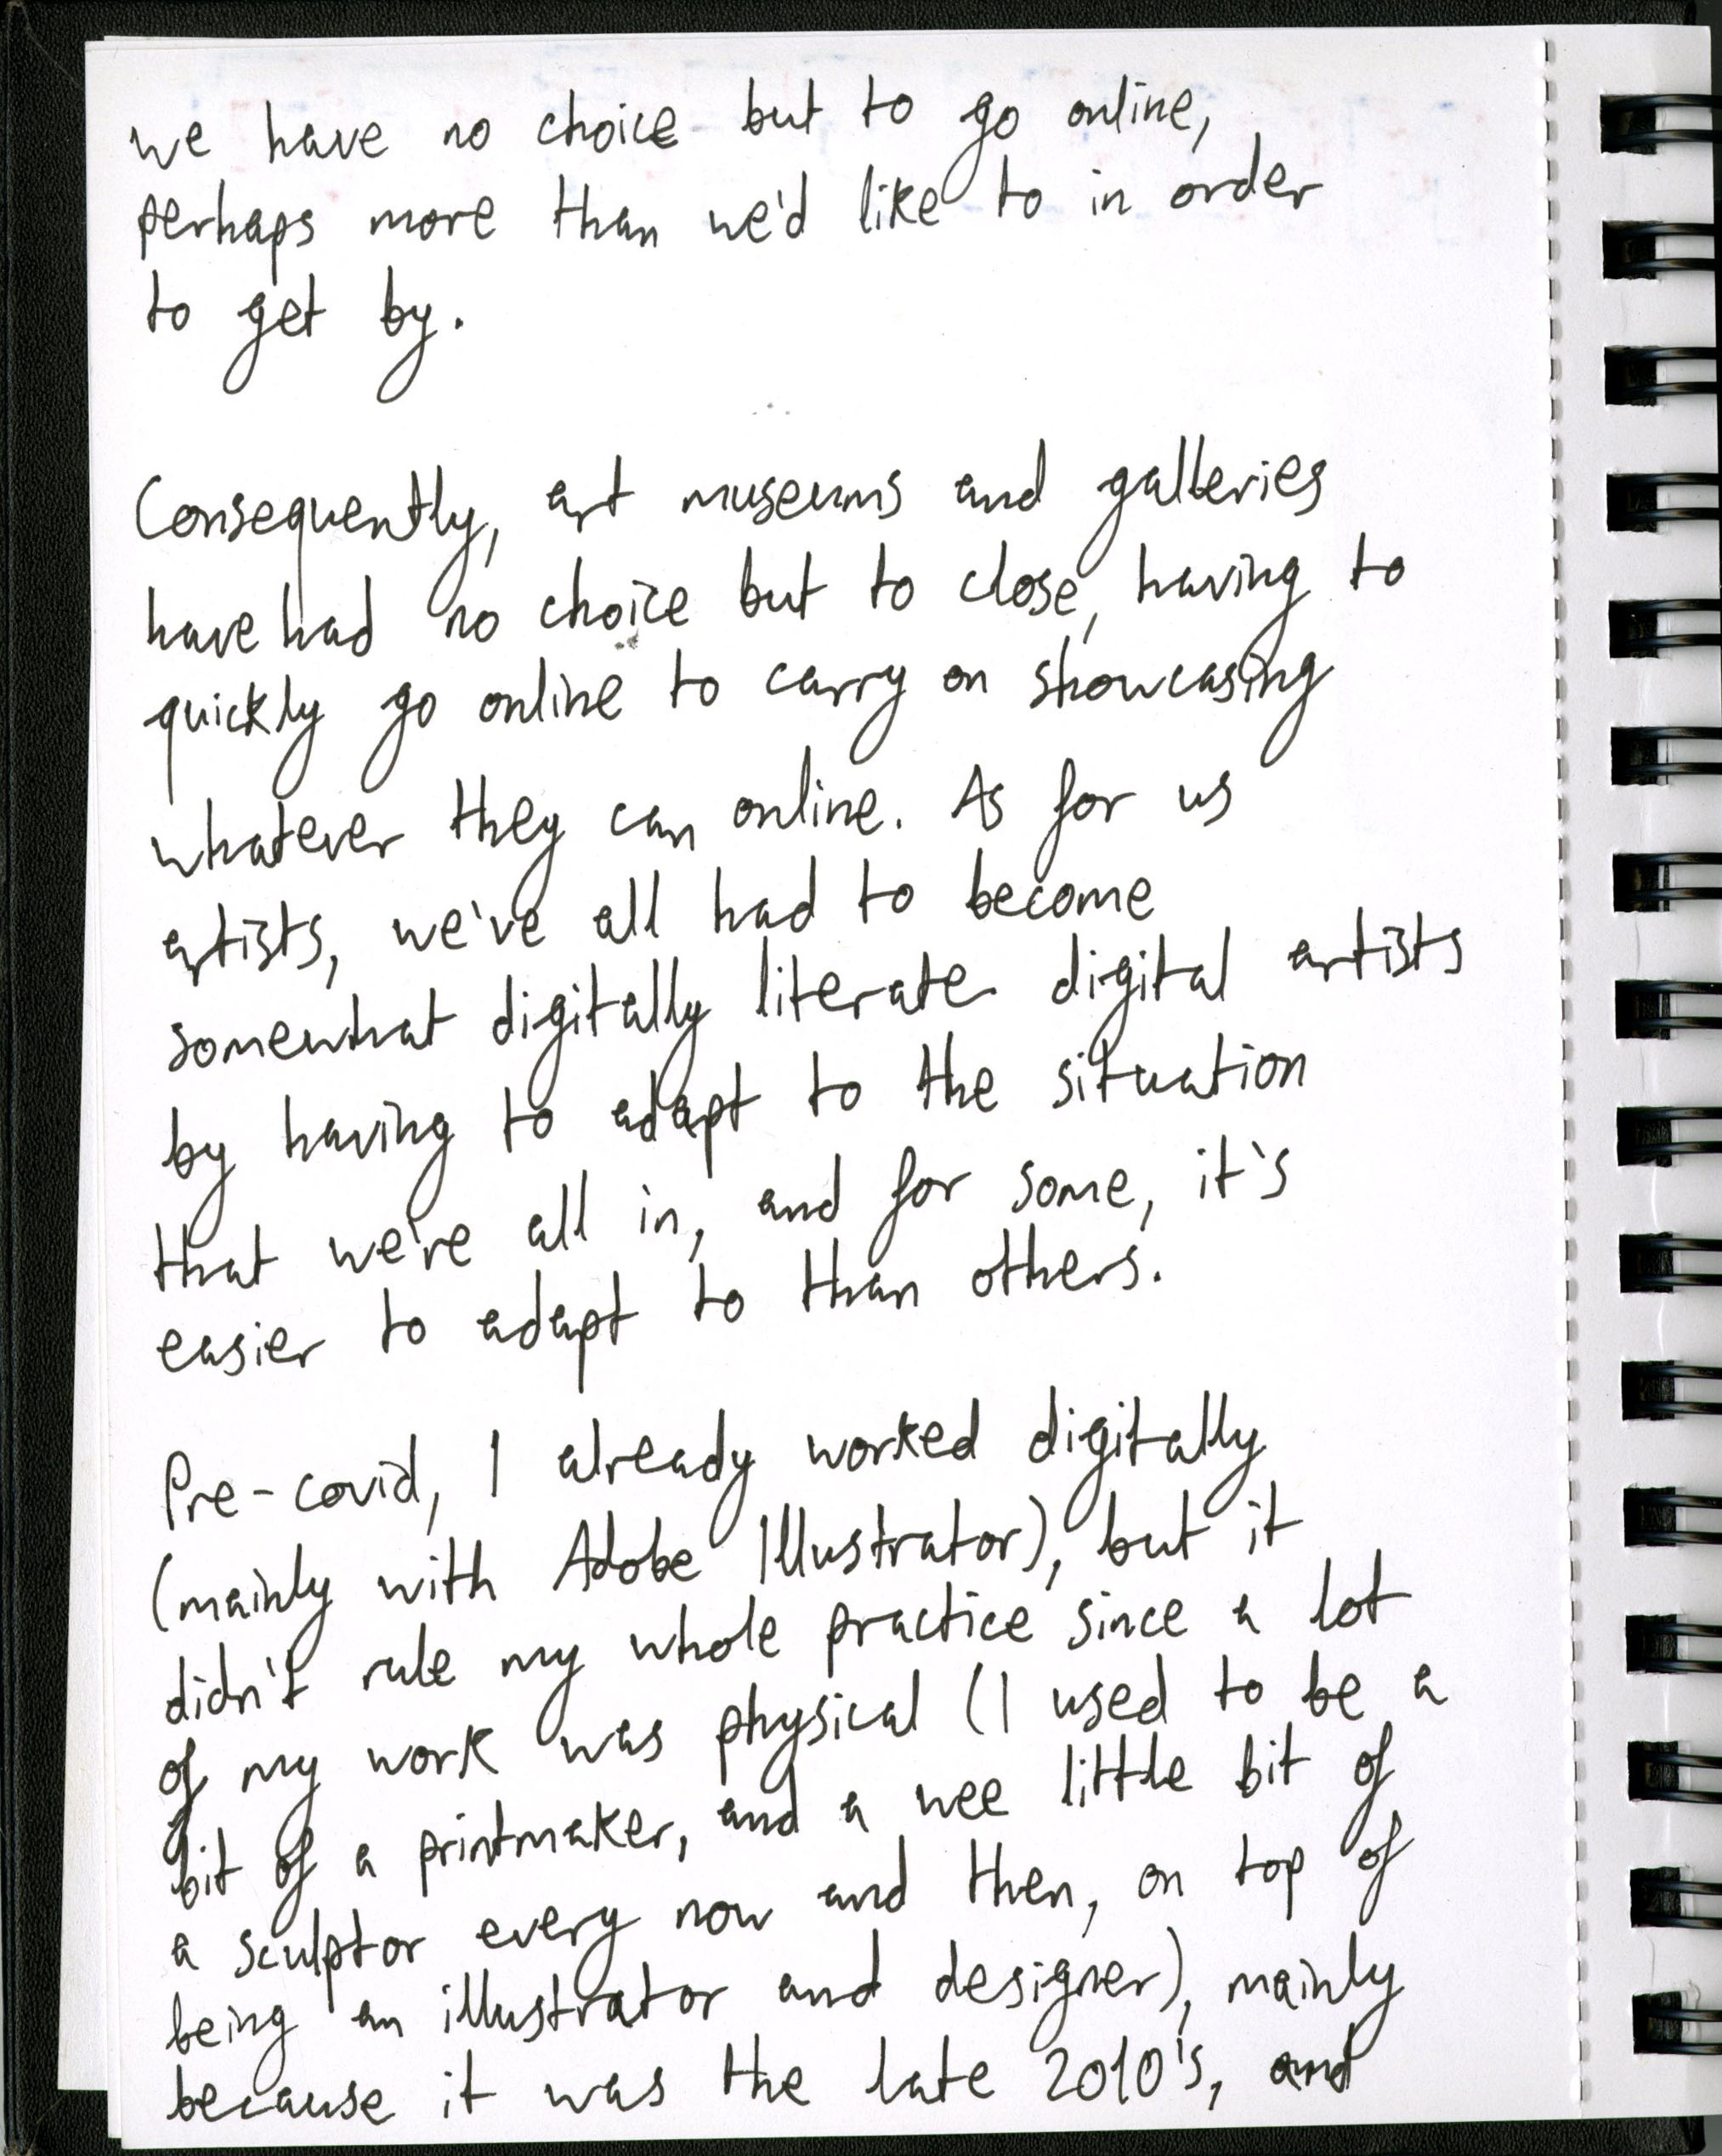 we have no choice but to go online,
perhaps more than we'd like to in order
to get by.
Consequently, art museums and galleries
have had no choice but to close, having to
quickly go online to carry on showcasing
whatever they can online. As for us
artists, we've all had to become
somewhat digitally literate digital artists
by having to adapt to the situation
that we're all in, and for some, it's
easier to adapt to than others.
Pre-covid, I already worked digitally
(mainly with Adobe Illustrator), but it
didn't rule my whole practice since a lot
of my work was physical (I used to be a
bit of a printmaker, and a wee little bit of
a sculptor every now and then, on top of
being an illustrator and designer), mainly
because it was the late 2010's, and